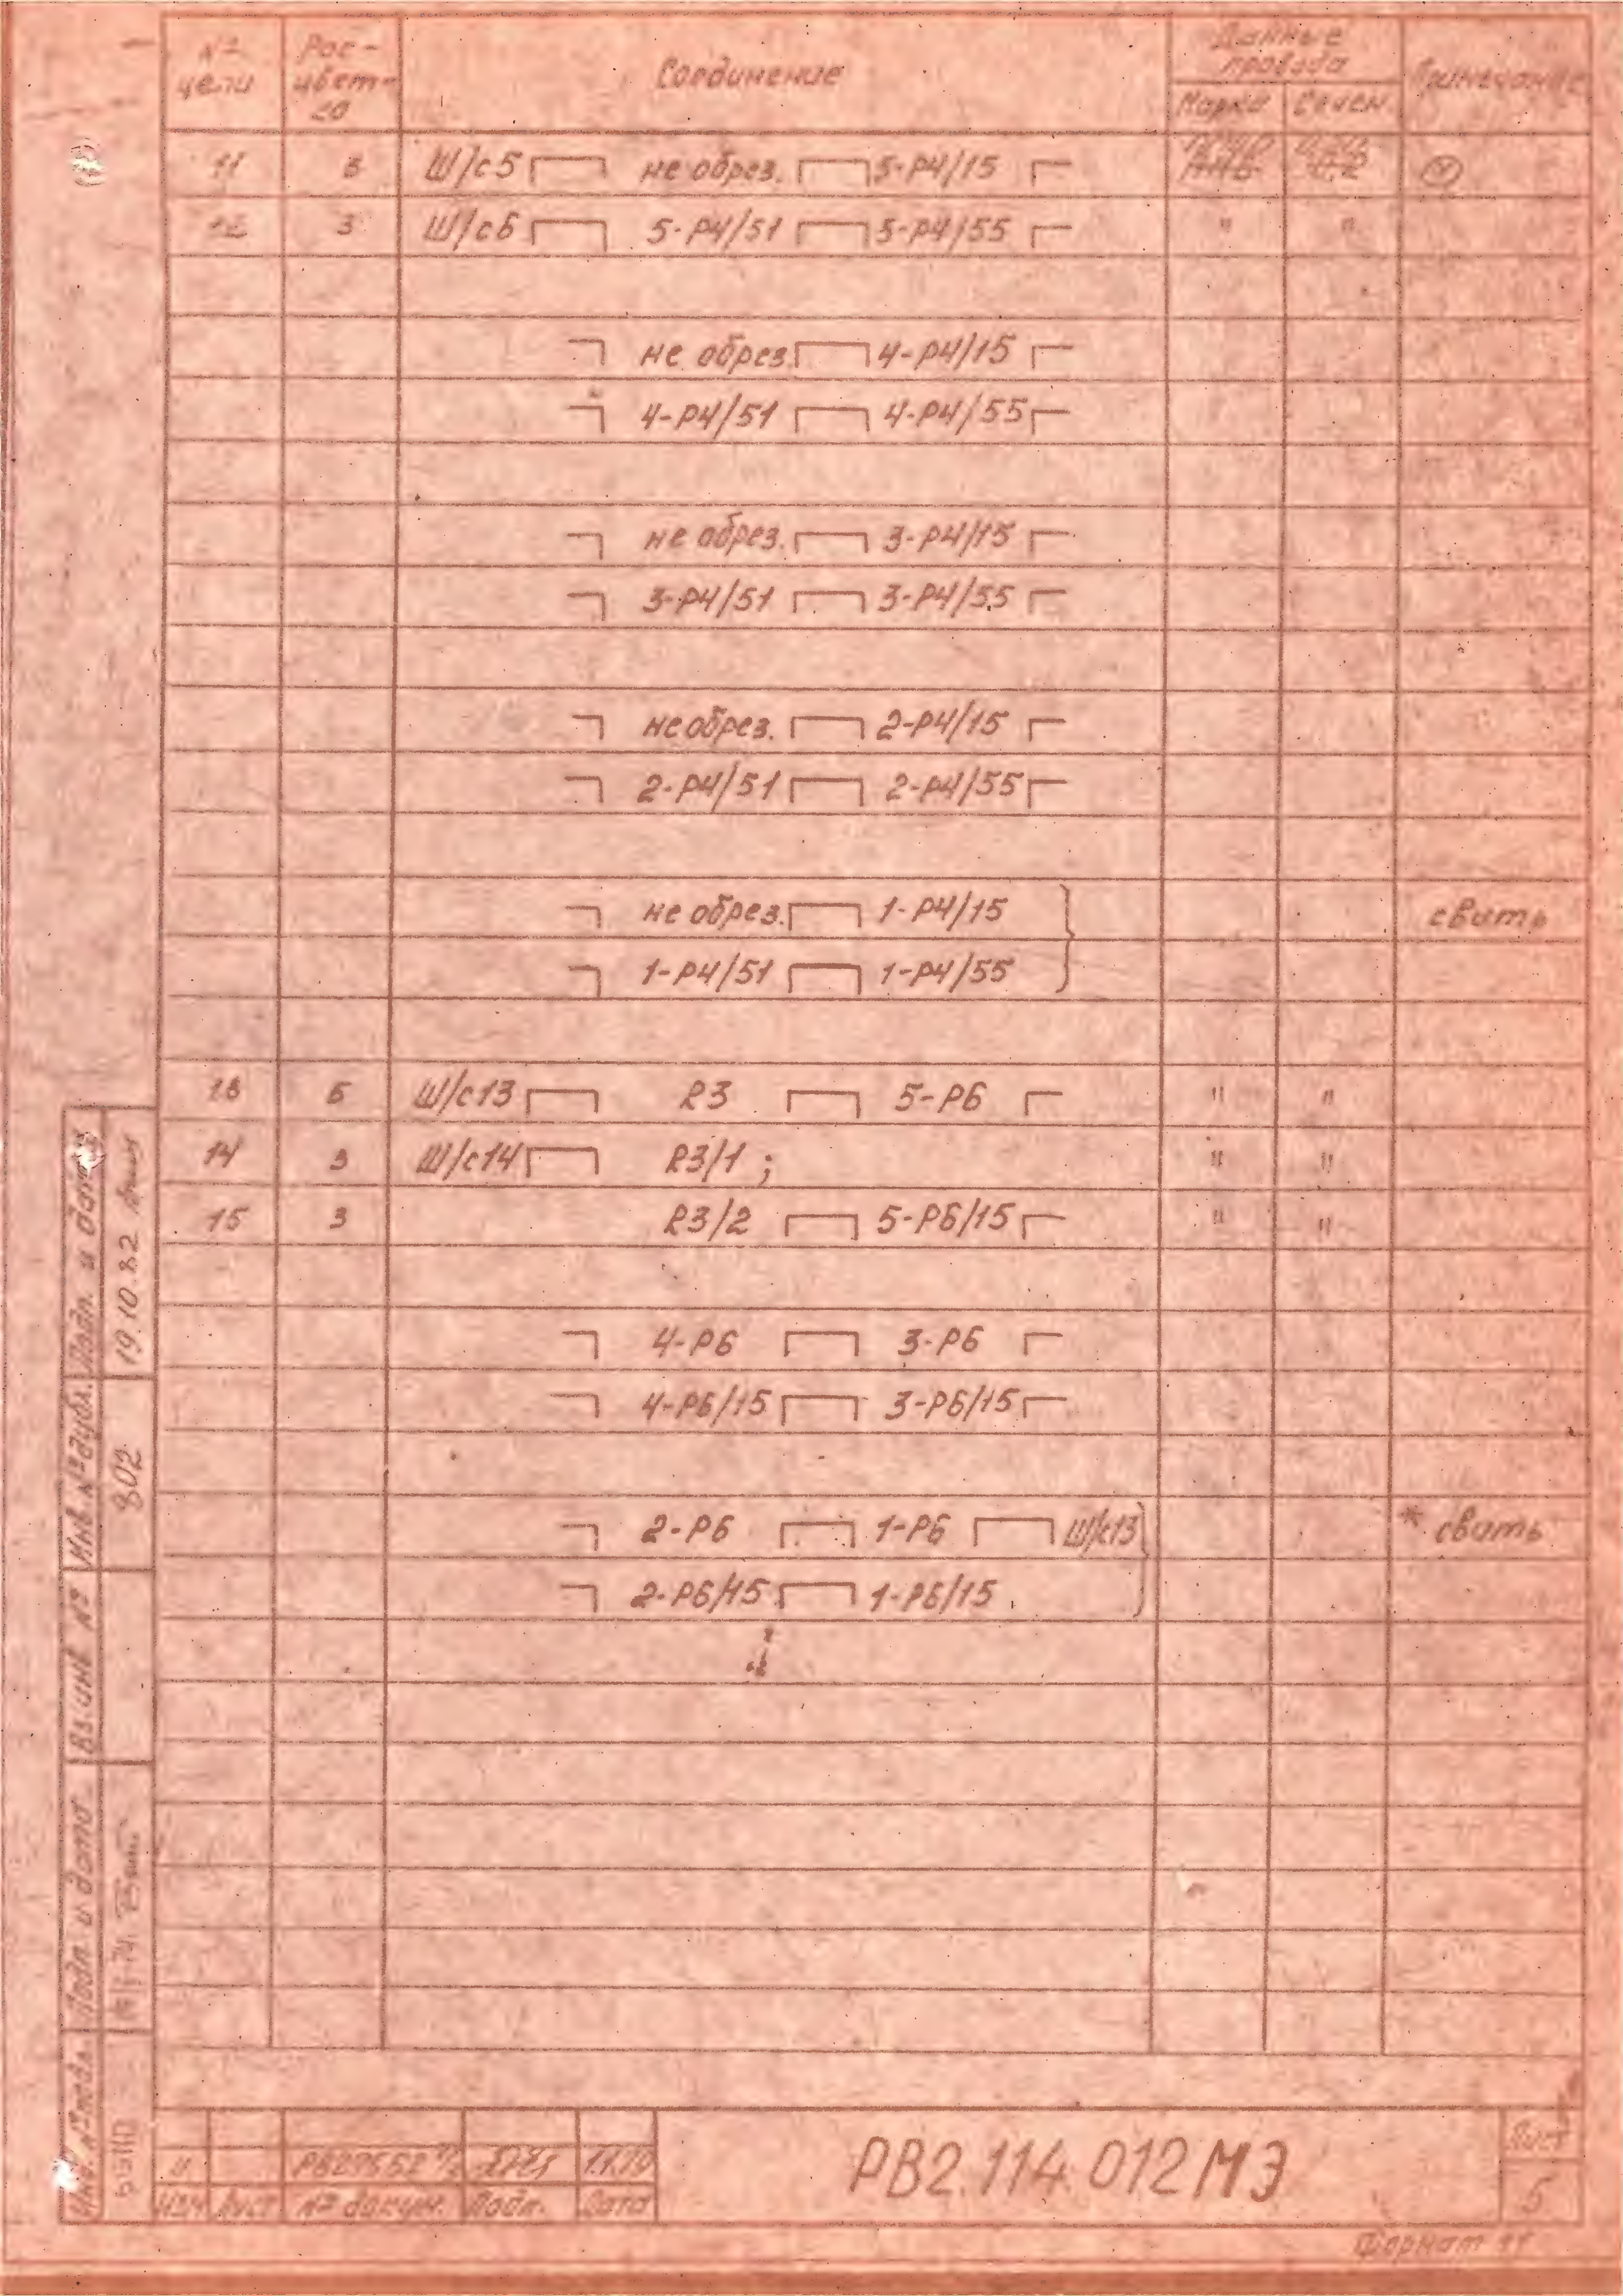 № цепи Рас-цвет-ка Соединение Данные провода Примечание
Марка Сечен.
11 Б Ш/с5 не обрез. 5-Р4/15
3 Ш/с6 5-Р4/51 5-Р4/55 " "
не обрез. 4-Р4/15
4-Р4/51 4-Р4/55
не обрез. 3-Р4/15
3-Р4/51 3-Р4/55
не обрез. 2-Р4/15
2-Р4/51 2-Р4/55
не обрез. 1-Р4/15 свить
1-Р4/51 1-Р4/55
13 Б Ш/с13 R3 5-Р6 " "
14 3 Ш/с14 R3/1; " "
15 3 R3/2 5-Р6/15 " "
4-Р6 3-Р6
4-Р6/15 3-Р6/15
2-Р6 1-Р6 Ш/с13 * свить
2-Р6/15 1-Р6/15
Подп. и дата 19.10.82
Инв. № дубл. 802
Вз. инв №
Подп. и дата
Инв. № подл.
Изм Лист № докум. Подп. Дата
РВ2.114.012МЭ
Лист
5
Формат 11